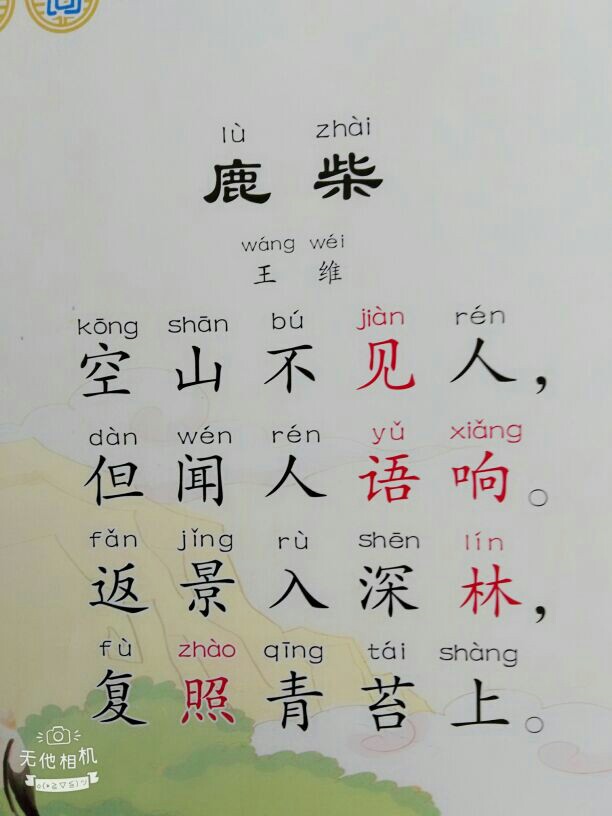 lù zhài
鹿柴
wáng wéi
王维
kōng shān bú jiàn rén
空山不见人，
dàn wén rén yǔ xiǎng
但闻人语响。
fǎn jǐng rù shēn lín
返景入深林，
fù zhào qīng tái shàng
复照青苔上。
无他相机